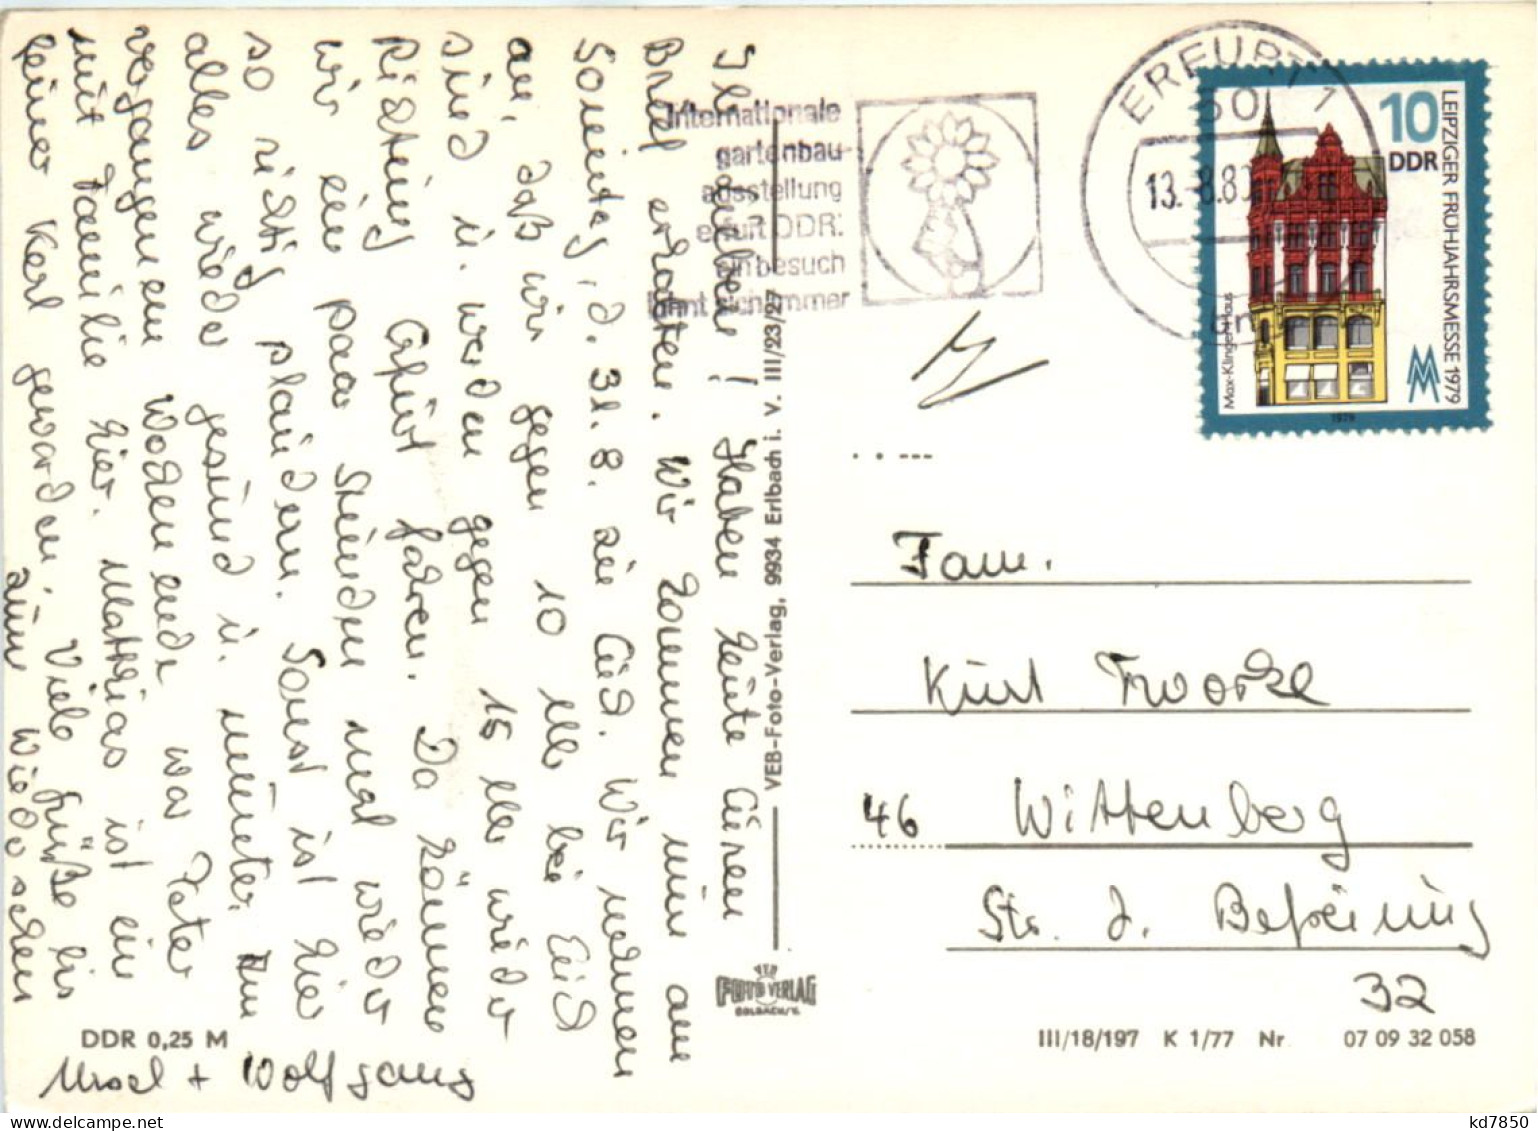 Ihr Lieben! Haben heute Euren
Brief erhalten. Wir kommen nun am
Sonntag, d. 31. 8. zu Euch. Wir nehmen
an, daß wir gegen 10 Uhr bei Euch
sind u. werden gegen 15 Uhr wieder
Richtung Erfurt fahren. Da können
wir ein paar Stunden mal wieder
so richtig plaudern. Sonst ist hier
alles wieder gesund u. munter. Am
vergangenen Wochenende war Peter
mit Familie hier. Matthias ist ein
feiner Kerl geworden. Viele Grüße bis
zum Wiedersehen
Ursel + Wolfgang
DDR 0,25 M
VEB-Foto-Verlag, 9934 Erlbach i. V. III/23/27
VEB
FOTO VERLAG
internationale
gartenbau-
ausstellung
erfurt DDR:
ein besuch
lohnt sich immer
ERFURT 1
50
13.-8.80
LEIPZIGER FRÜHJAHRSMESSE 1979
10
DDR
Max-Klinger-Haus
MM
1979
Fam.
Kurt
46 Wittenberg
Str. d. Befreiung
32
III/18/197 K 1/77 Nr 07 09 32 058
kd7850